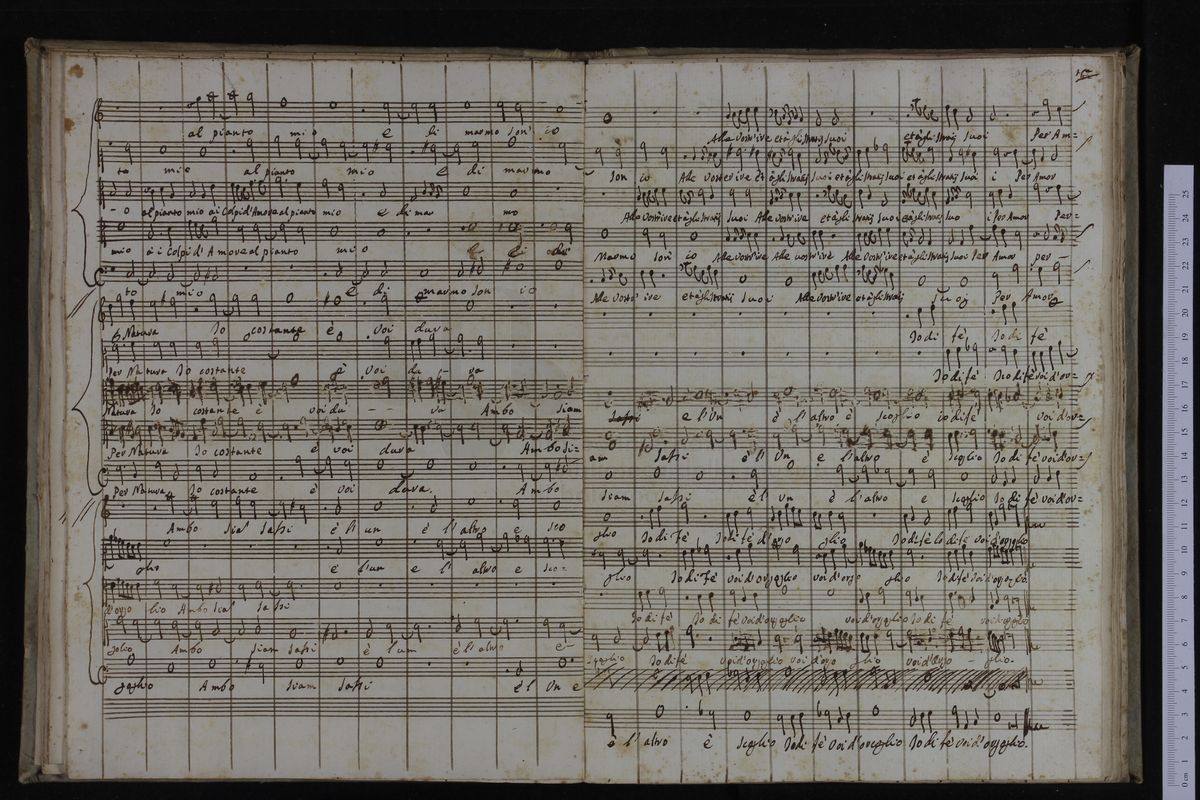 al pianto mio e di marmo son io
to mio al pianto mio e di marmo
o al pianto mio ai Colpi d'Amore al pianto mio e di mar mo
mio ai Colpi d'Amore al pianto mio e di
to mio e di marmo son io
Natura Io costante è voi dura
Per Natura Io costante è voi du ra
Natura Io costante è voi du - - ra Ambo siam
Per Natura Io costante è voi dura Ambo si=
Per Natura Io costante è voi dura. Ambo
Ambo siam sassi è l'un è l'altro e sco
glio è l'un e l'altro e sco=
glio Ambo siam sassi
glio Ambo siam sassi è l'un è l'altro è
scoglio Ambo siam sassi è l'Un e
Alle vostr'ire et agli strazij suoi et agli strazij suoi Per Am=
son io Alle vostre ire et agli strazij suoi et agli strazij suoi et agli strazij suoi i Per Amor
Alle vostr'ire et agli strazij suoi Alle vostr'ire et agli strazij suoi et agli strazij suo i Per Amor Per=
Marmo son io Alle vostr'ire Alle vostr'ire Alle vostr'ire et agli strazij suoi Per Amor per
Alle vostr'ire et agli strazij suoi Alle vostr'ire et agli strazij suoi Per Amor
Io di fè Io di fè
Io di fè Io di fè voi d'or=
sassi e l'Un è l'altro è scoglio io di fè voi d'or=
am sassi è l'Un e l'altro è scoglio Io di fè voi d'or=
siam sassi è l'Un è l'altro e scoglio Io di fè voi d'or=
glio Io di fè Io di fè d'orgo glio Io di fè Io di fè voi d'orgoglio
glio Io di Fè voi d'orgoglio voi d'orgo glio Io di fè voi d'orgoglio
Io di fè Io di fè voi d'orgoglio voi d'orgoglio Io di fè voi d'orgoglio
scoglio Io di fè voi d'orgoglio voi d'orgo glio voi d'orgo - glio.
e l'altro è scoglio Io di fè voi d'orgoglio Io di fè voi d'orgoglio.
0 cm 1 2 3 4 5 6 7 8 9 10 11 12 13 14 15 16 17 18 19 20 21 22 23 24 25